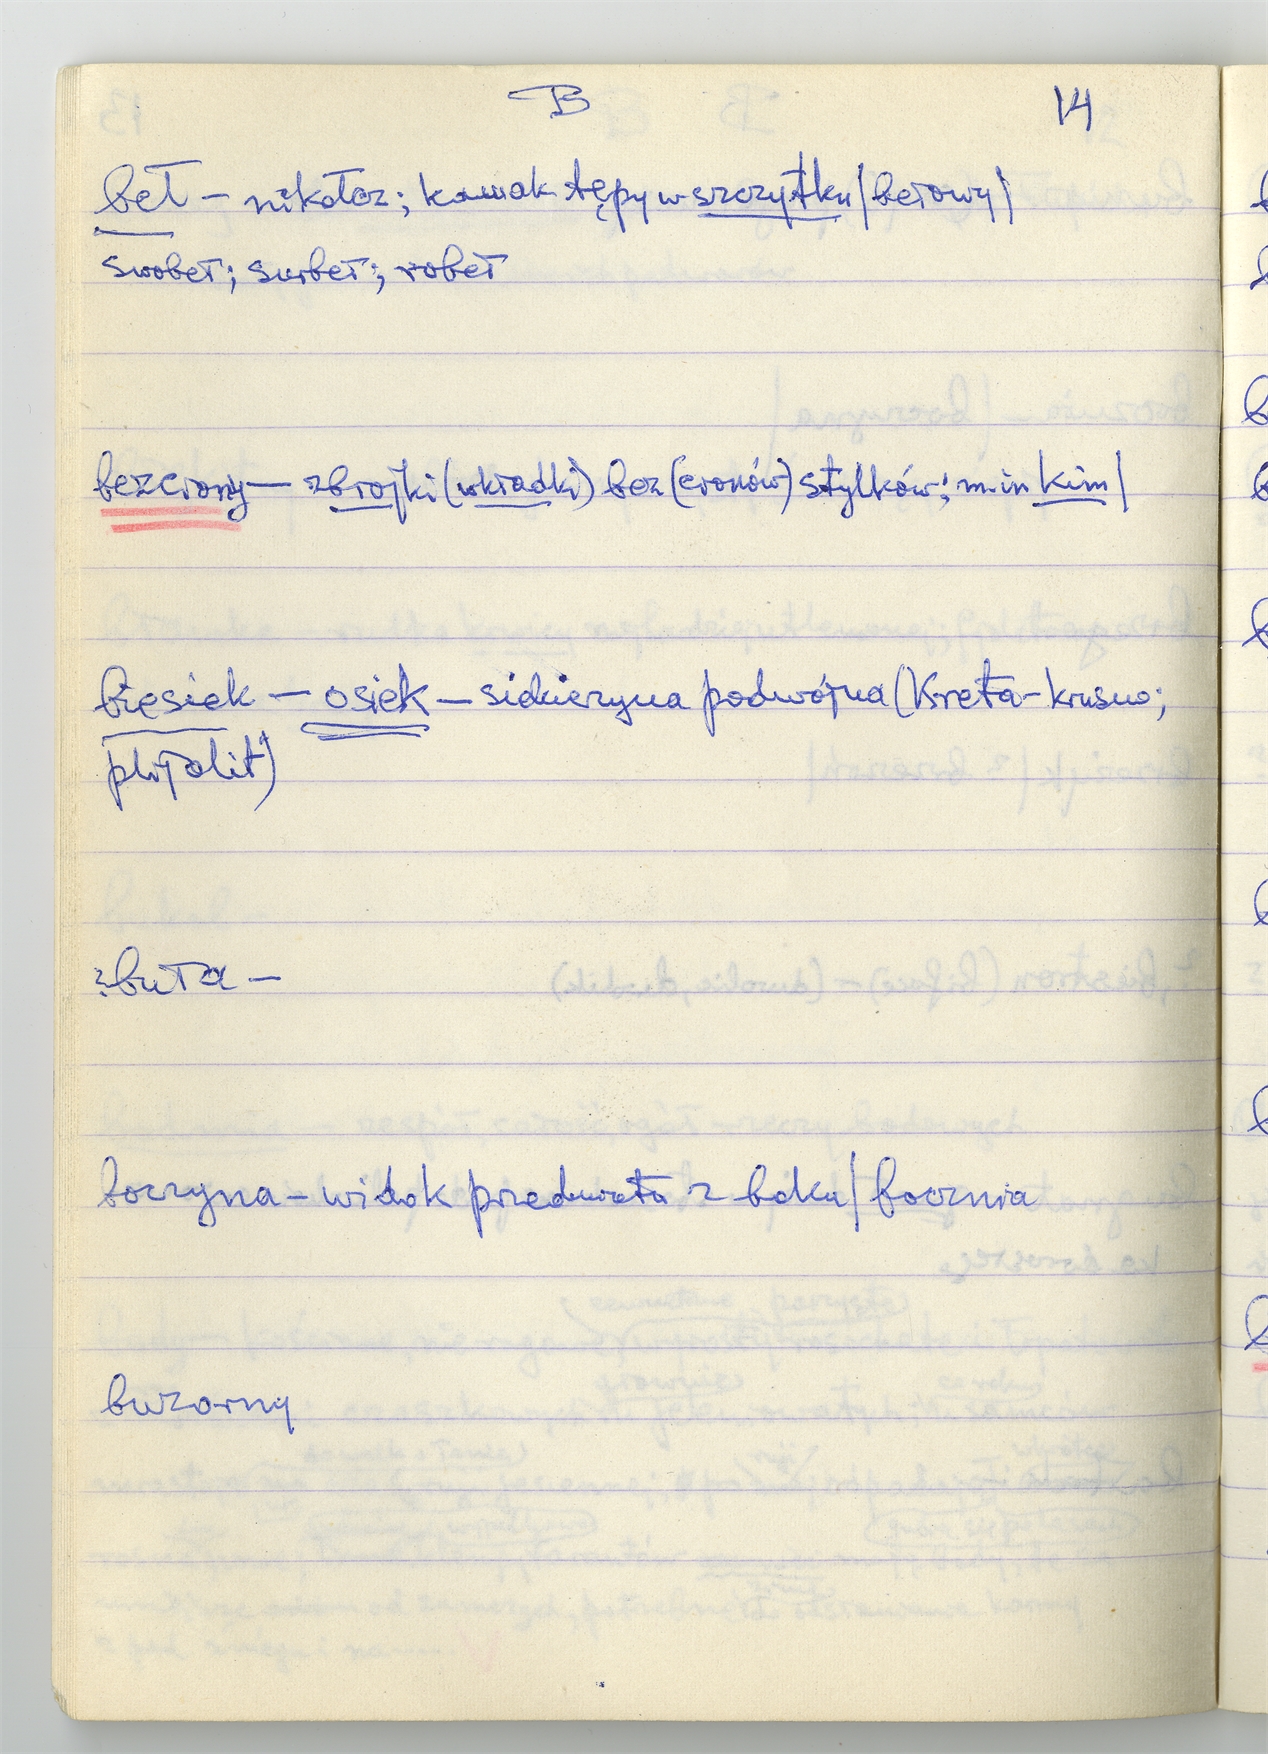 B 14
beł – nikołaz; kawak tępy w szczytku /bełowy/
swobeł; surbeł; robeł
bezcrony – zbrojki (wkładki) bez (cronów) stylków; m. in kim /
biesiek – osiek – siekieryna podwójna (Kreta - krusw;
phytolit)
? buła –
boczyna – widok przedmiotu z boku / bocznia
bwzorny